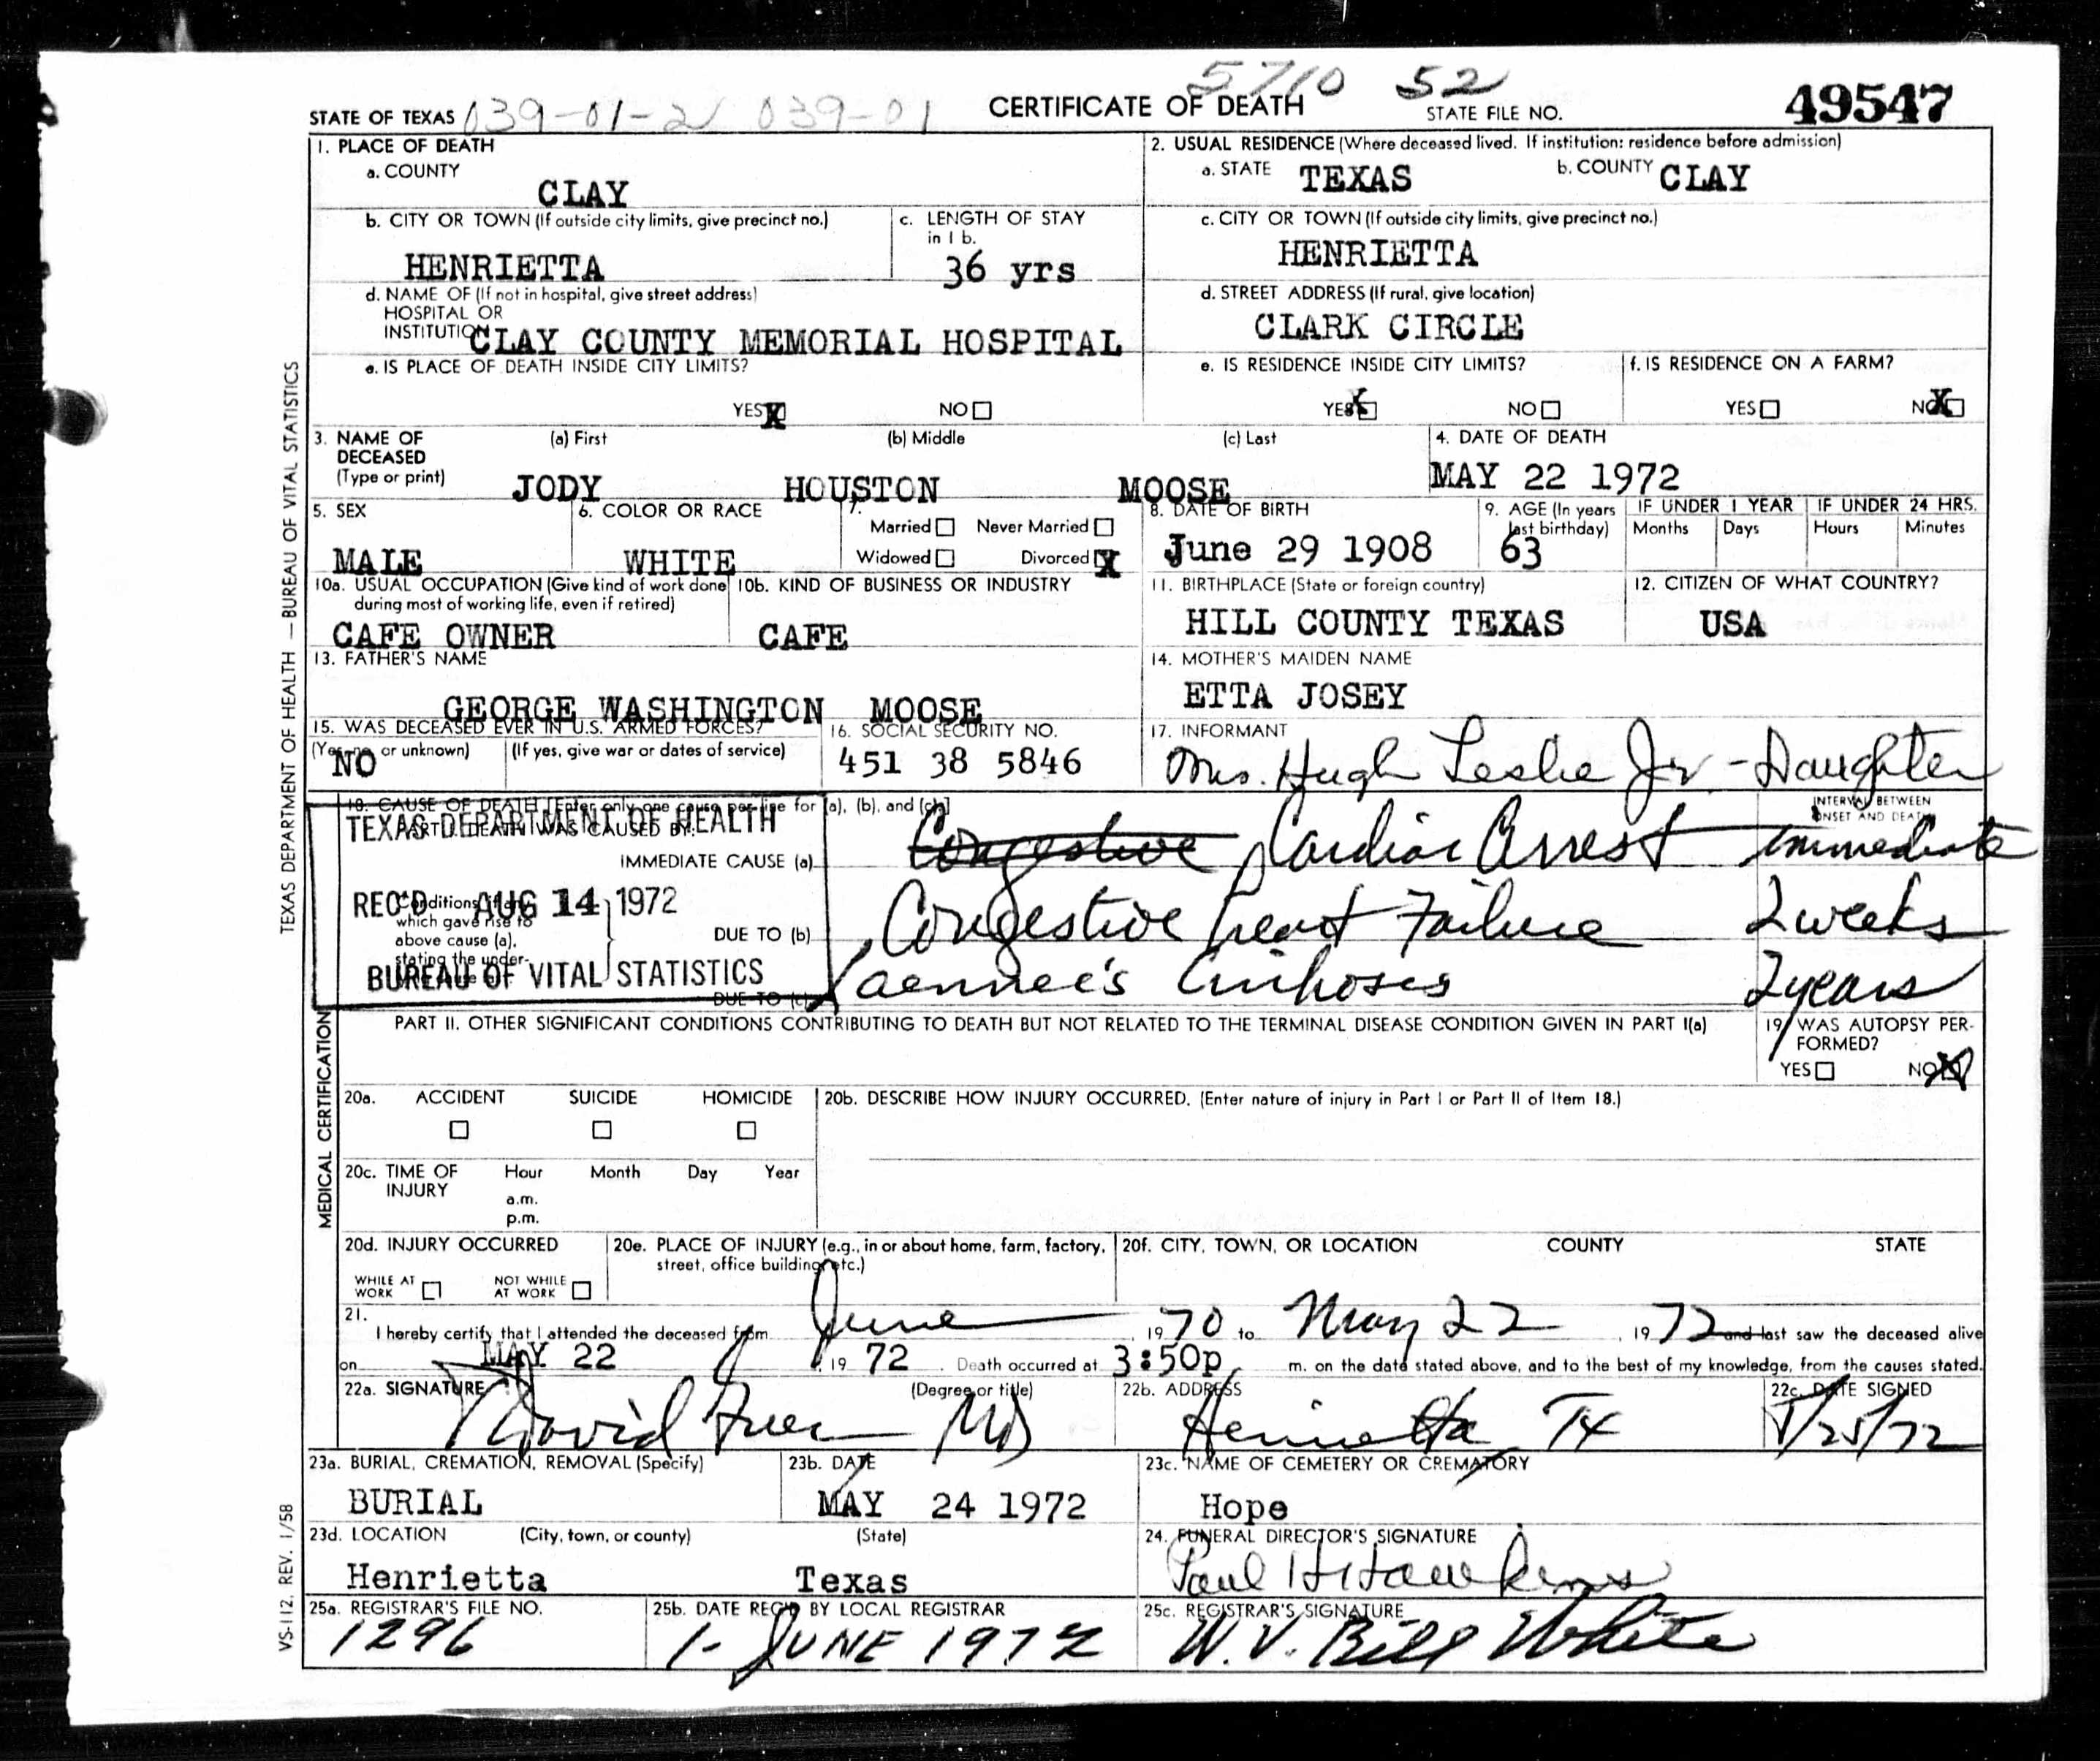 5710 52
STATE OF TEXAS 039-01-2 039-01 CERTIFICATE OF DEATH STATE FILE NO. 49547
1. PLACE OF DEATH
a. COUNTY
CLAY
2. USUAL RESIDENCE (Where deceased lived. If institution: residence before admission)
a. STATE TEXAS b. COUNTY CLAY
b. CITY OR TOWN (If outside city limits, give precinct no.)
HENRIETTA
c. LENGTH OF STAY
in 1 b.
36 yrs
c. CITY OR TOWN (If outside city limits, give precinct no.)
HENRIETTA
d. NAME OF (If not in hospital, give street address)
HOSPITAL OR
INSTITUTION CLAY COUNTY MEMORIAL HOSPITAL
d. STREET ADDRESS (If rural, give location)
CLARK CIRCLE
e. IS PLACE OF DEATH INSIDE CITY LIMITS?
YES X NO
e. IS RESIDENCE INSIDE CITY LIMITS?
YES X NO
f. IS RESIDENCE ON A FARM?
YES NO X
3. NAME OF
DECEASED
(Type or print)
(a) First (b) Middle (c) Last
JODY HOUSTON MOOSE
4. DATE OF DEATH
MAY 22 1972
5. SEX
MALE
6. COLOR OR RACE
WHITE
7.
Married Never Married
Widowed Divorced X
8. DATE OF BIRTH
June 29 1908
9. AGE (In years
last birthday)
63
IF UNDER 1 YEAR
Months Days
IF UNDER 24 HRS.
Hours Minutes
10a. USUAL OCCUPATION (Give kind of work done
during most of working life, even if retired)
CAFE OWNER
10b. KIND OF BUSINESS OR INDUSTRY
CAFE
11. BIRTHPLACE (State or foreign country)
HILL COUNTY TEXAS
12. CITIZEN OF WHAT COUNTRY?
USA
13. FATHER'S NAME
GEORGE WASHINGTON MOOSE
14. MOTHER'S MAIDEN NAME
ETTA JOSEY
15. WAS DECEASED EVER IN U.S. ARMED FORCES?
(Yes, no or unknown) (If yes, give war or dates of service)
NO
16. SOCIAL SECURITY NO.
451 38 5846
17. INFORMANT
Mrs. Hugh Leslie Jr. - Daughter
18. CAUSE OF DEATH [Enter only one cause per line for (a), (b), and (c).]
PART I. DEATH WAS CAUSED BY:
INTERVAL BETWEEN
ONSET AND DEATH
IMMEDIATE CAUSE (a) Congestive Cardiac Arrest immediate
Conditions, if any,
which gave rise to
above cause (a),
stating the under-
DUE TO (b) Congestive heart Failure 2 weeks
DUE TO (c) Laennec's Cirrhosis 2 years
TEXAS DEPARTMENT OF HEALTH
REC'D AUG 14 1972
BUREAU OF VITAL STATISTICS
PART II. OTHER SIGNIFICANT CONDITIONS CONTRIBUTING TO DEATH BUT NOT RELATED TO THE TERMINAL DISEASE CONDITION GIVEN IN PART I(a)
19. WAS AUTOPSY PER-
FORMED?
YES NO X
20a. ACCIDENT SUICIDE HOMICIDE
20b. DESCRIBE HOW INJURY OCCURRED. (Enter nature of injury in Part I or Part II of Item 18.)
20c. TIME OF
INJURY
Hour Month Day Year
a.m.
p.m.
20d. INJURY OCCURRED
WHILE AT
WORK
NOT WHILE
AT WORK
20e. PLACE OF INJURY (e.g., in or about home, farm, factory,
street, office building, etc.)
20f. CITY, TOWN, OR LOCATION COUNTY STATE
21.
I hereby certify that I attended the deceased from June, 1970 to May 22, 1972 and last saw the deceased alive
on MAY 22, 1972. Death occurred at 3:50p m. on the date stated above, and to the best of my knowledge, from the causes stated.
22a. SIGNATURE (Degree or title)
David Greer MD
22b. ADDRESS
Henrietta, TX
22c. DATE SIGNED
5/25/72
23a. BURIAL, CREMATION, REMOVAL (Specify)
BURIAL
23b. DATE
MAY 24 1972
23c. NAME OF CEMETERY OR CREMATORY
Hope
23d. LOCATION (City, town, or county) (State)
Henrietta Texas
24. FUNERAL DIRECTOR'S SIGNATURE
Paul H Hawkins
25a. REGISTRAR'S FILE NO.
1296
25b. DATE REC'D BY LOCAL REGISTRAR
1- JUNE 1972
25c. REGISTRAR'S SIGNATURE
W.V. Bill White
TEXAS DEPARTMENT OF HEALTH — BUREAU OF VITAL STATISTICS
MEDICAL CERTIFICATION
VS-112, REV. 1/58